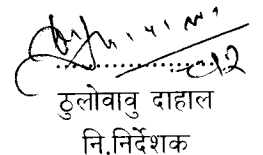 ठुलोवावु दाहाल
नि.निर्देशक